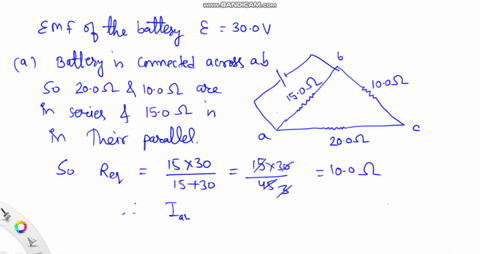 WWW.BANDICAM.COM
EMF of the battery ε = 30.0V
(a) Battery is connected across ab
So 20.0Ω & 10.0Ω are
in series & 15.0Ω in
in their parallel.
b
15.0Ω
10.0Ω
a
c
20.0Ω
So Req = 15×30 / 15+30 = 15×30 / 45 3 = 10.0Ω
∴ Iac